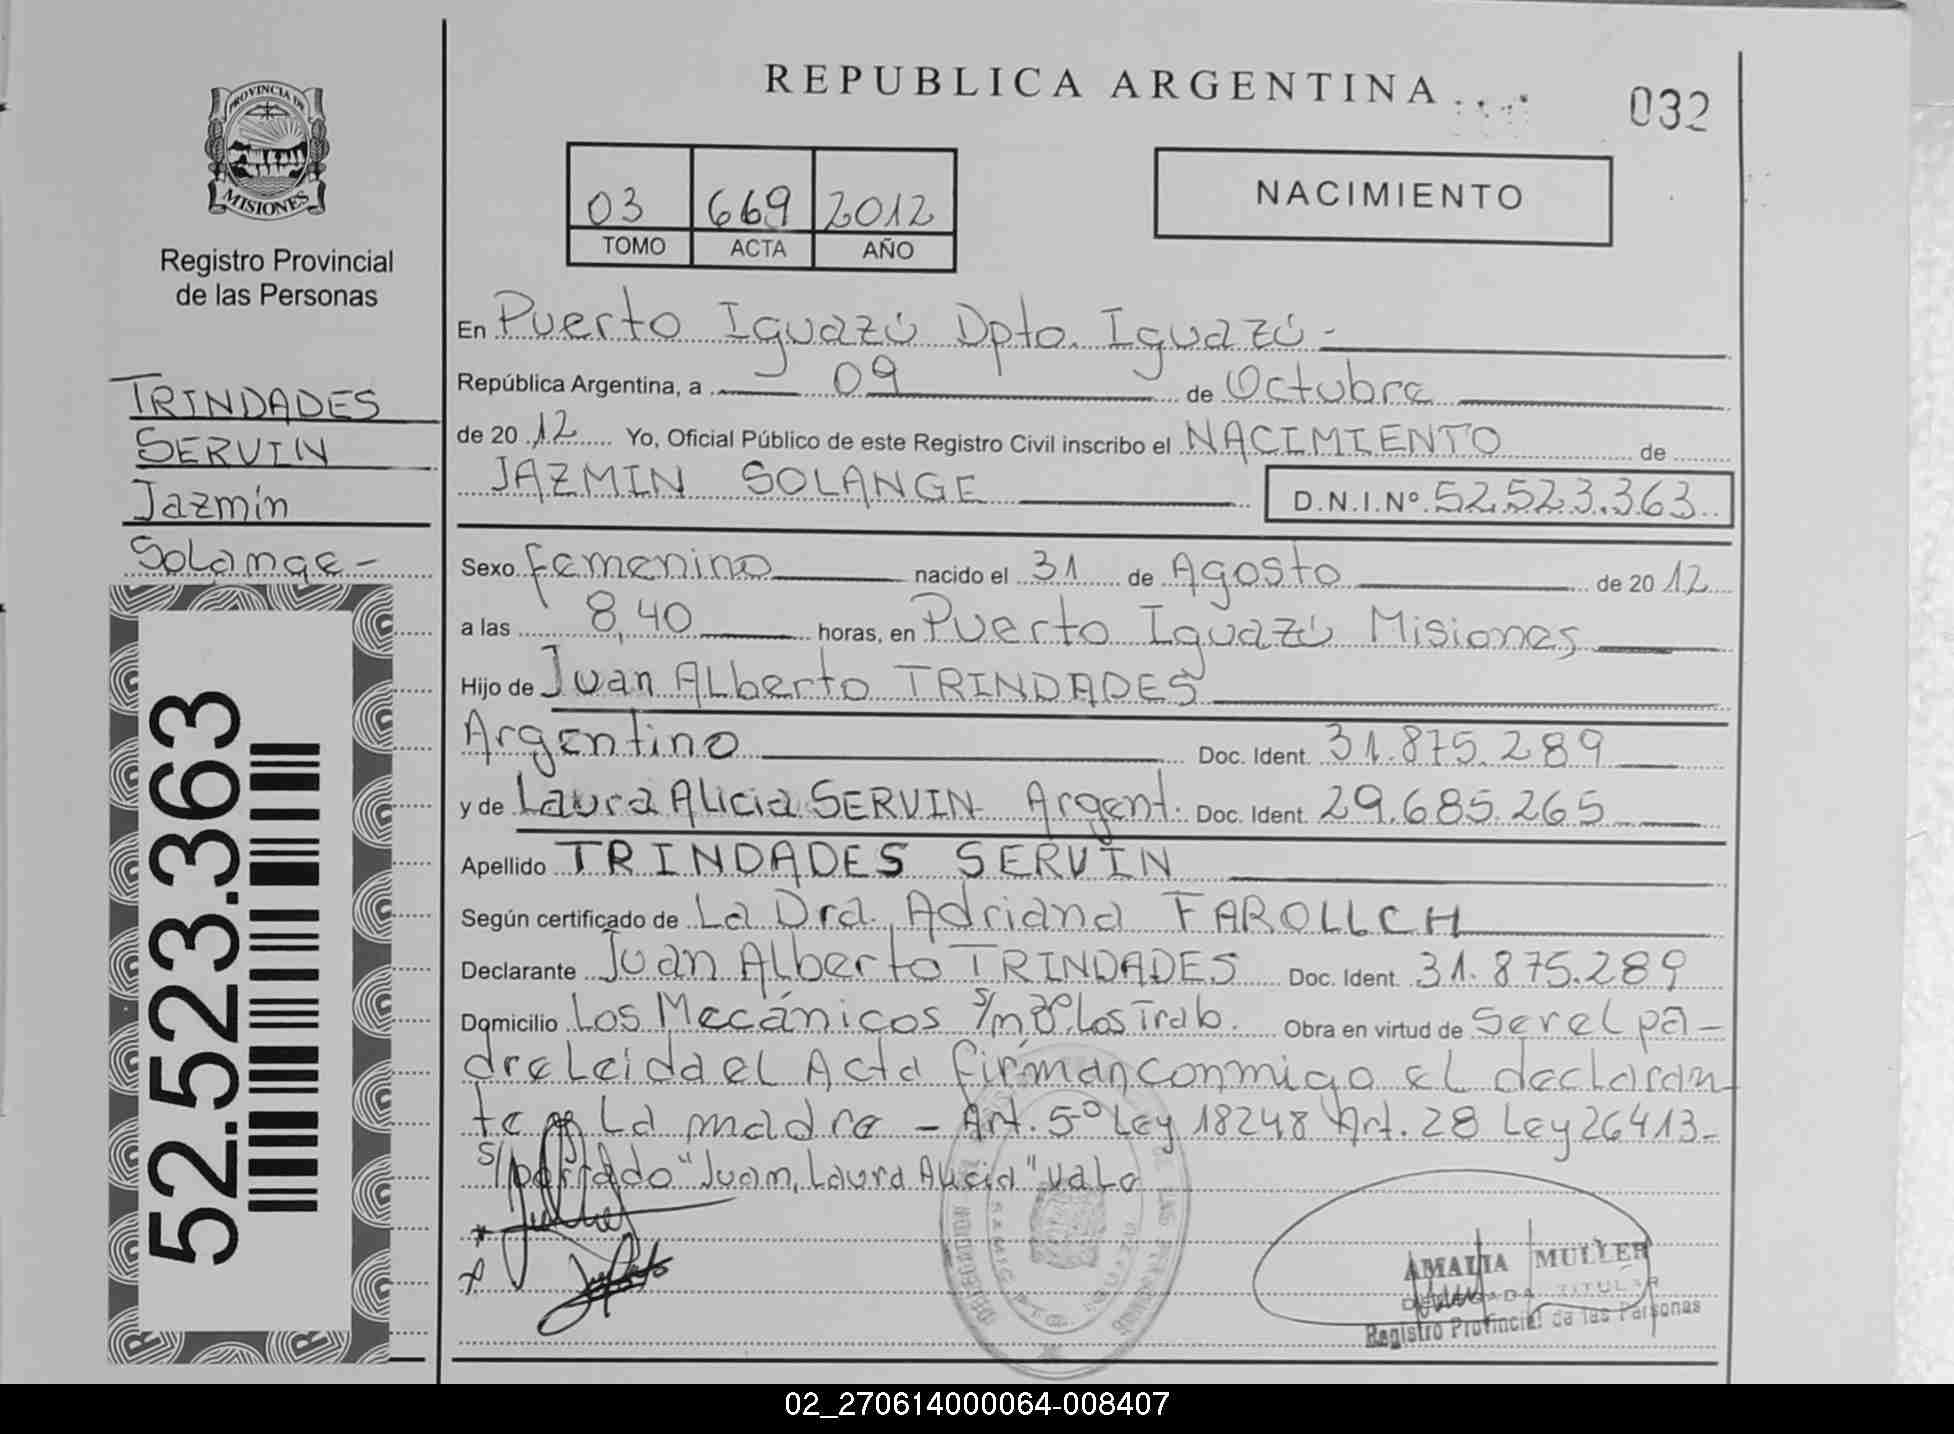 REPUBLICA ARGENTINA
032
PROVINCIA DE
MISIONES
Registro Provincial
de las Personas
03 669 2012
TOMO ACTA AÑO
NACIMIENTO
TRINDADES
SERVIN
Jazmín
Solange-
52.523.363
En Puerto Iguazú Dpto. Iguazú-
República Argentina, a 09 de Octubre
de 20 12 Yo, Oficial Público de este Registro Civil inscribo el NACIMIENTO de
JAZMIN SOLANGE D.N.I.Nº 52.523.363
Sexo femenino nacido el 31 de Agosto de 20 12
a las 8,40 horas, en Puerto Iguazú Misiones
Hijo de Juan Alberto TRINDADES
Argentino Doc. Ident. 31.875.289
y de Laura Alicia SERVIN Argent. Doc. Ident. 29.685.265
Apellido TRINDADES SERVIN
Según certificado de La Dra. Adriana FAROLLCH
Declarante Juan Alberto TRINDADES Doc. Ident. 31.875.289
Domicilio Los Mecánicos s/n Bº Los Trab. Obra en virtud de Ser el pa-
dre Leida el Acta firman conmigo el declaran-
te y La madre - Art. 5º Ley 18248 Art. 28 Ley 26413-
"Juan, Laura Alicia" vale
AMALIA MULLER
DELEGADA TITULAR
Registro Provincial de las Personas
02_270614000064-008407